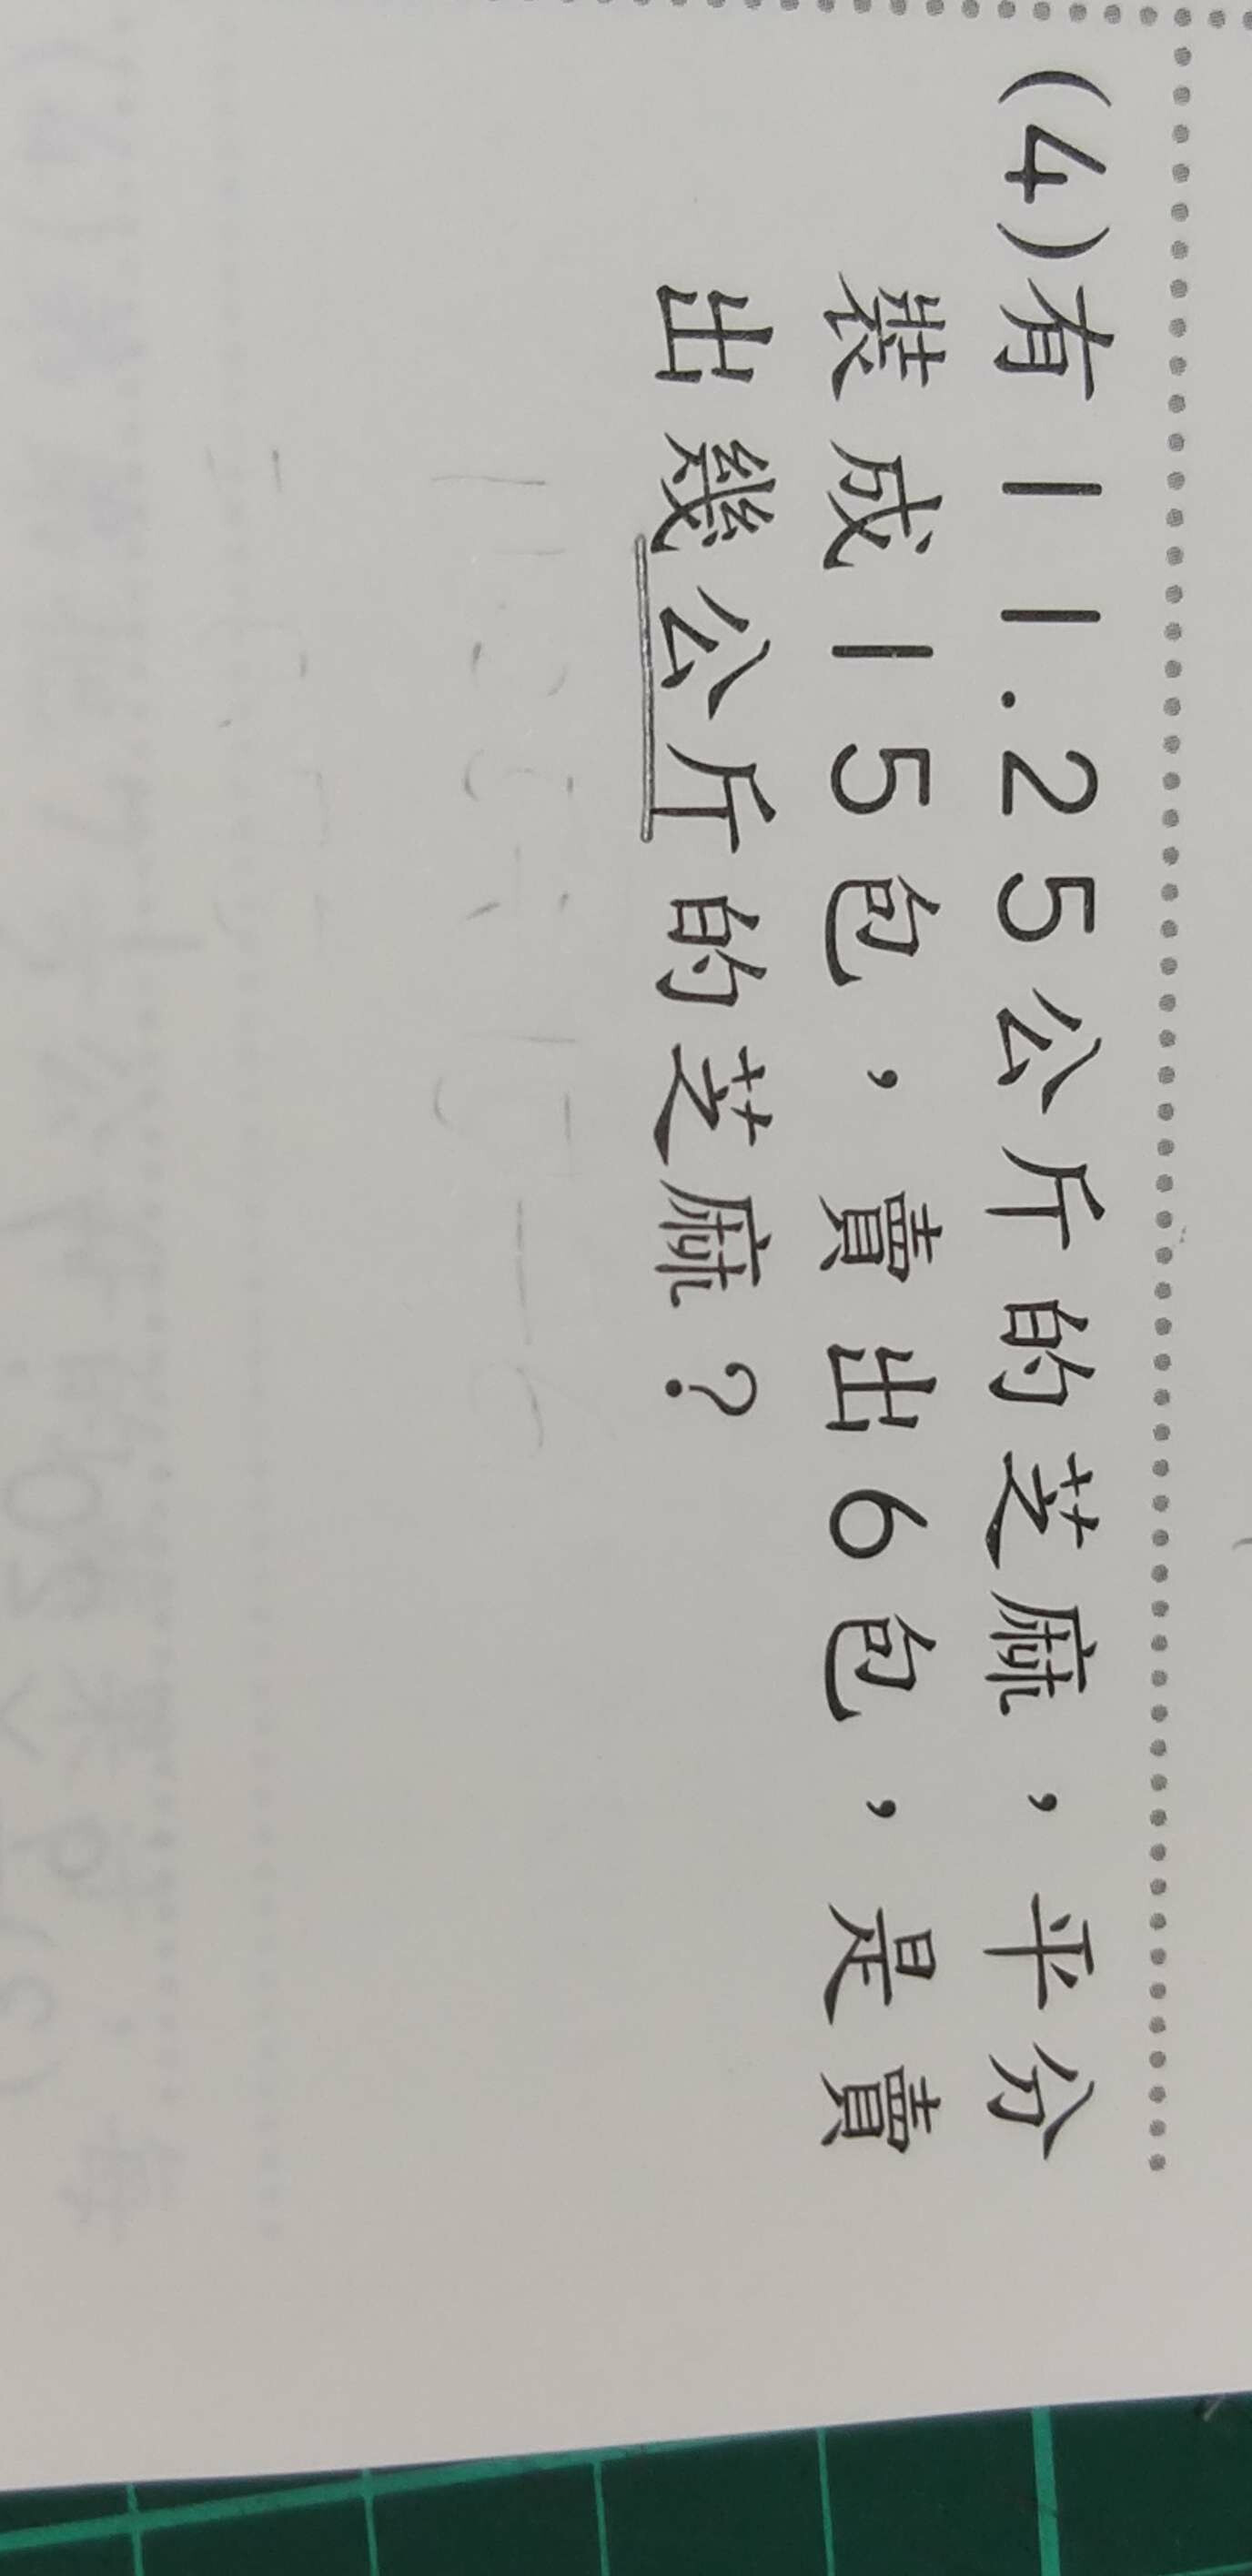 (4)有11.25公斤的芝麻，平分
裝成15包，賣出6包，是賣
出幾公斤的芝麻？